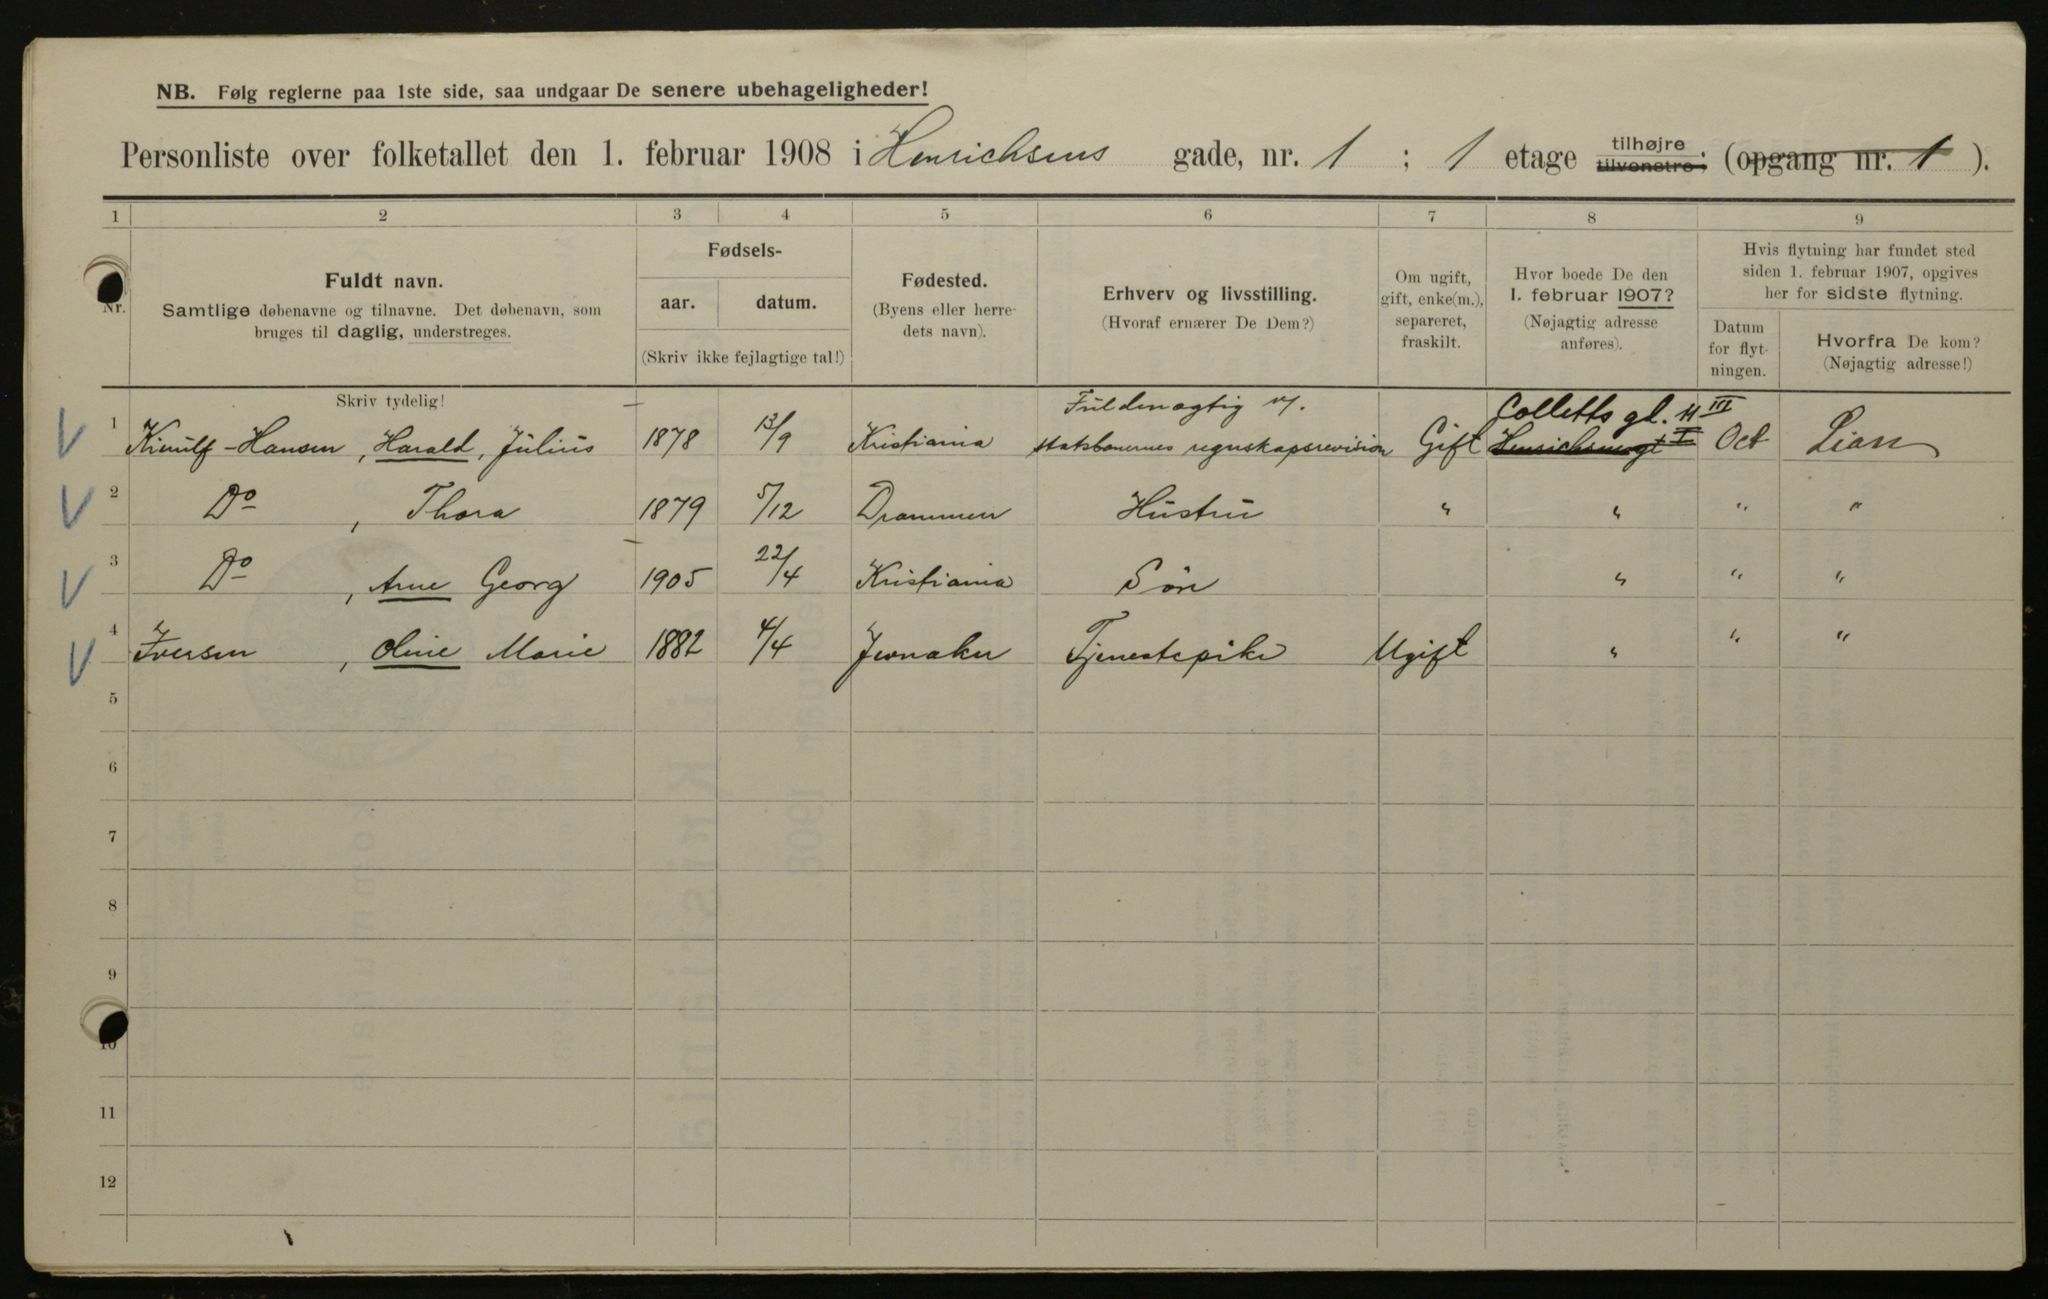 NB. Følg reglerne paa 1ste side, saa undgaar De senere ubehageligheder!
Personliste over folketallet den 1. februar 1908 i Henrichsens gade, nr. 1 ; 1 etage tilhøjre tilvenstre; (opgang nr. 1 ).
1 2 3 4 5 6 7 8 9
Nr.
Fuldt navn.
Samtlige døbenavne og tilnavne. Det døbenavn, som
bruges til daglig, understreges.
Fødsels-
aar. datum.
(Skriv ikke fejlagtige tal!)
Fødested.
(Byens eller herre-
dets navn).
Erhverv og livsstilling.
(Hvoraf ernærer De Dem?)
Om ugift,
gift, enke(m.),
separeret,
fraskilt.
Hvor boede De den
1. februar 1907?
(Nøjagtig adresse
anføres).
Hvis flytning har fundet sted
siden 1. februar 1907, opgives
her for sidste flytning.
Datum
for flyt-
ningen.
Hvorfra De kom?
(Nøjagtig adresse!)
Skriv tydelig!
Fuldmægtig v. Colletts gt. 11 III
1 -Hansen, Harald, Julius 1878 13/9 Kristiania statsbanernes regnskapsrevision Gift Henrichsensgt 1 I Oct Lian
2 Do , Thora 1879 5/12 Drammen Hustru " " " "
3 Do , Arne Georg 1905 22/4 Kristiania Søn " " "
4 Iversen , Oline Marie 1882 4/4 Jevnaker Tjenestepike Ugift " " "
5
6
7
8
9
10
11
12